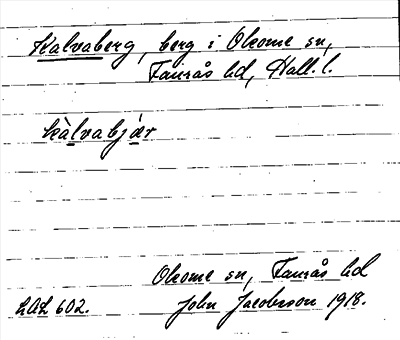 Kalvaberg, berg i Okome sn,
Faurås hd, Hall. l.
kàlvabjær
Okome sn, Faurås hd
LAL 602. John Jacobsson 1918.